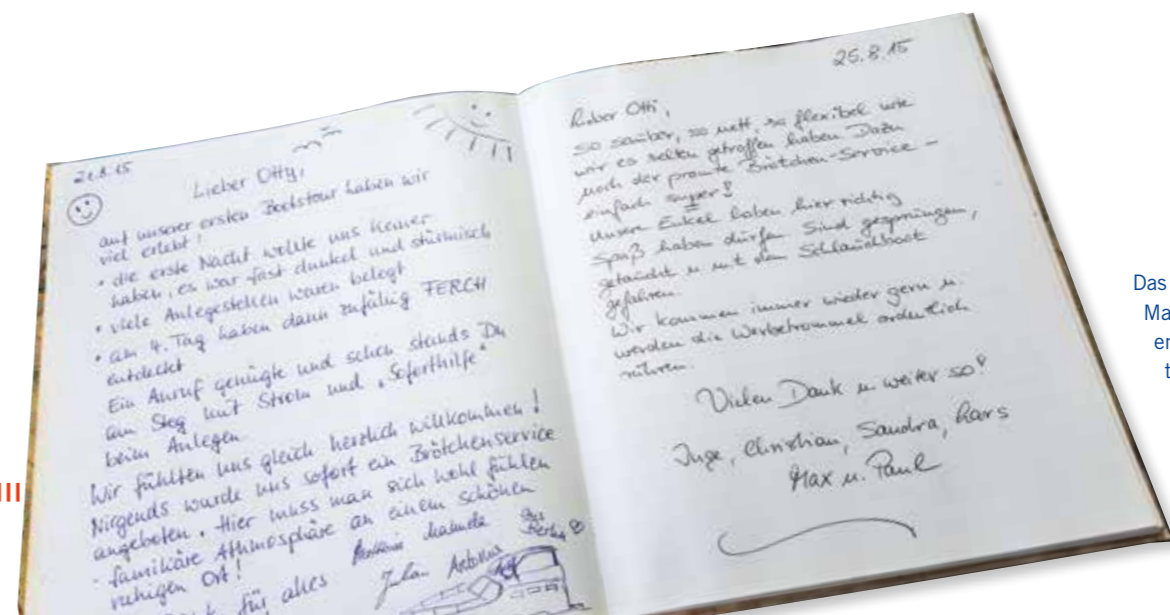 21.8.15
Lieber Otty,
auf unserer ersten Bootstour haben wir
viel erlebt!
• die erste Nacht wollte uns keiner
haben, es war fast dunkel und stürmisch
• viele Anlegestellen waren belegt
• am 4. Tag haben dann zufällig FERCH
entdeckt
Ein Anruf genügte und schon stands Du
am Steg mit Strom und „Soforthilfe"
beim Anlegen
Wir fühlten uns gleich herzlich willkommen!
Nirgends wurde uns sofort ein Brötchenservice
angeboten. Hier muss man sich wohl fühlen
- familiäre Athmosphäre an einem schönen
ruhigen Ort!
für alles
aus
25.8.15
Lieber Otti,
so sauber, so nett, so flexibel wie
wir es selten getroffen haben. Dazu
noch der promte Brötchen-Service –
einfach super!
Unsere Enkel haben hier richtig
Spaß haben dürfen. Sind gesprungen,
getaucht u. mit dem Schlauchboot
gefahren.
Wir kommen immer wieder gern u.
werden die Werbetrommel ordentlich
rühren.
Vielen Dank u. weiter so!
Inge, Christian, Sandra, Lars
Max u. Paul
Das
Ma
er
t